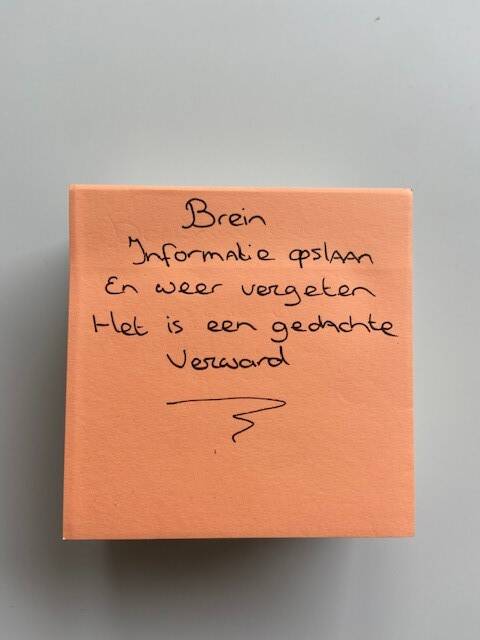 Brein
Informatie opslaan
En weer vergeten
Het is een gedachte
Verward